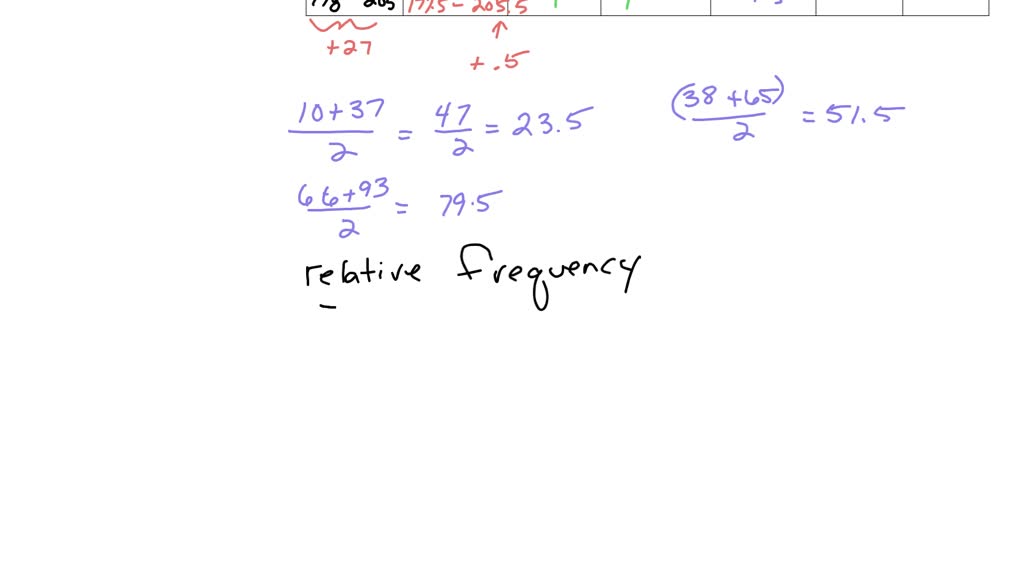 178 205 177.5 - 205.5
+27
+ .5
10+37 / 2 = 47 / 2 = 23.5
(38 +65) / 2 = 51.5
66+93 / 2 = 79.5
relative frequency